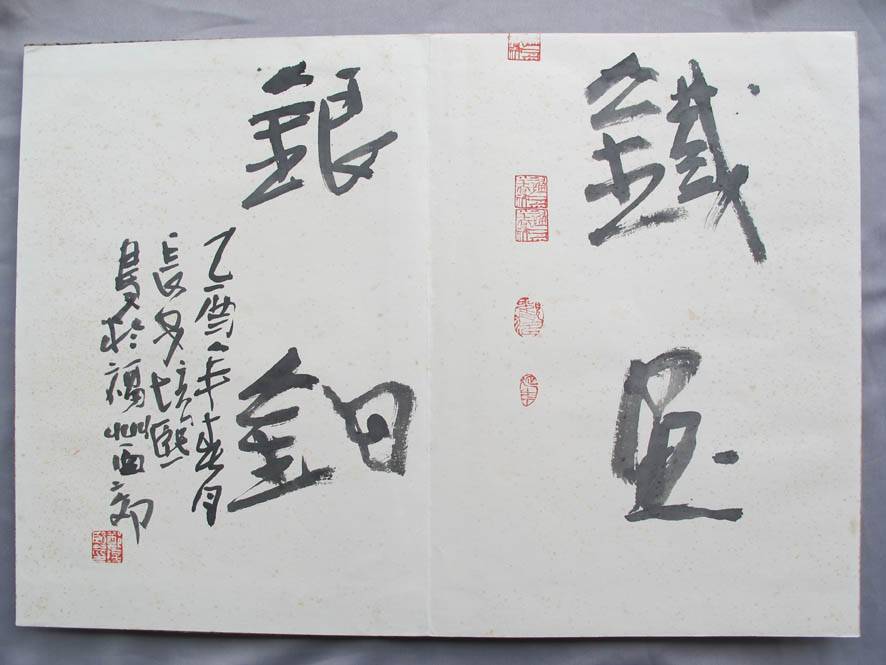 鐵畫
銀鉤
乙酉年春月
長培熙
於福州西郊